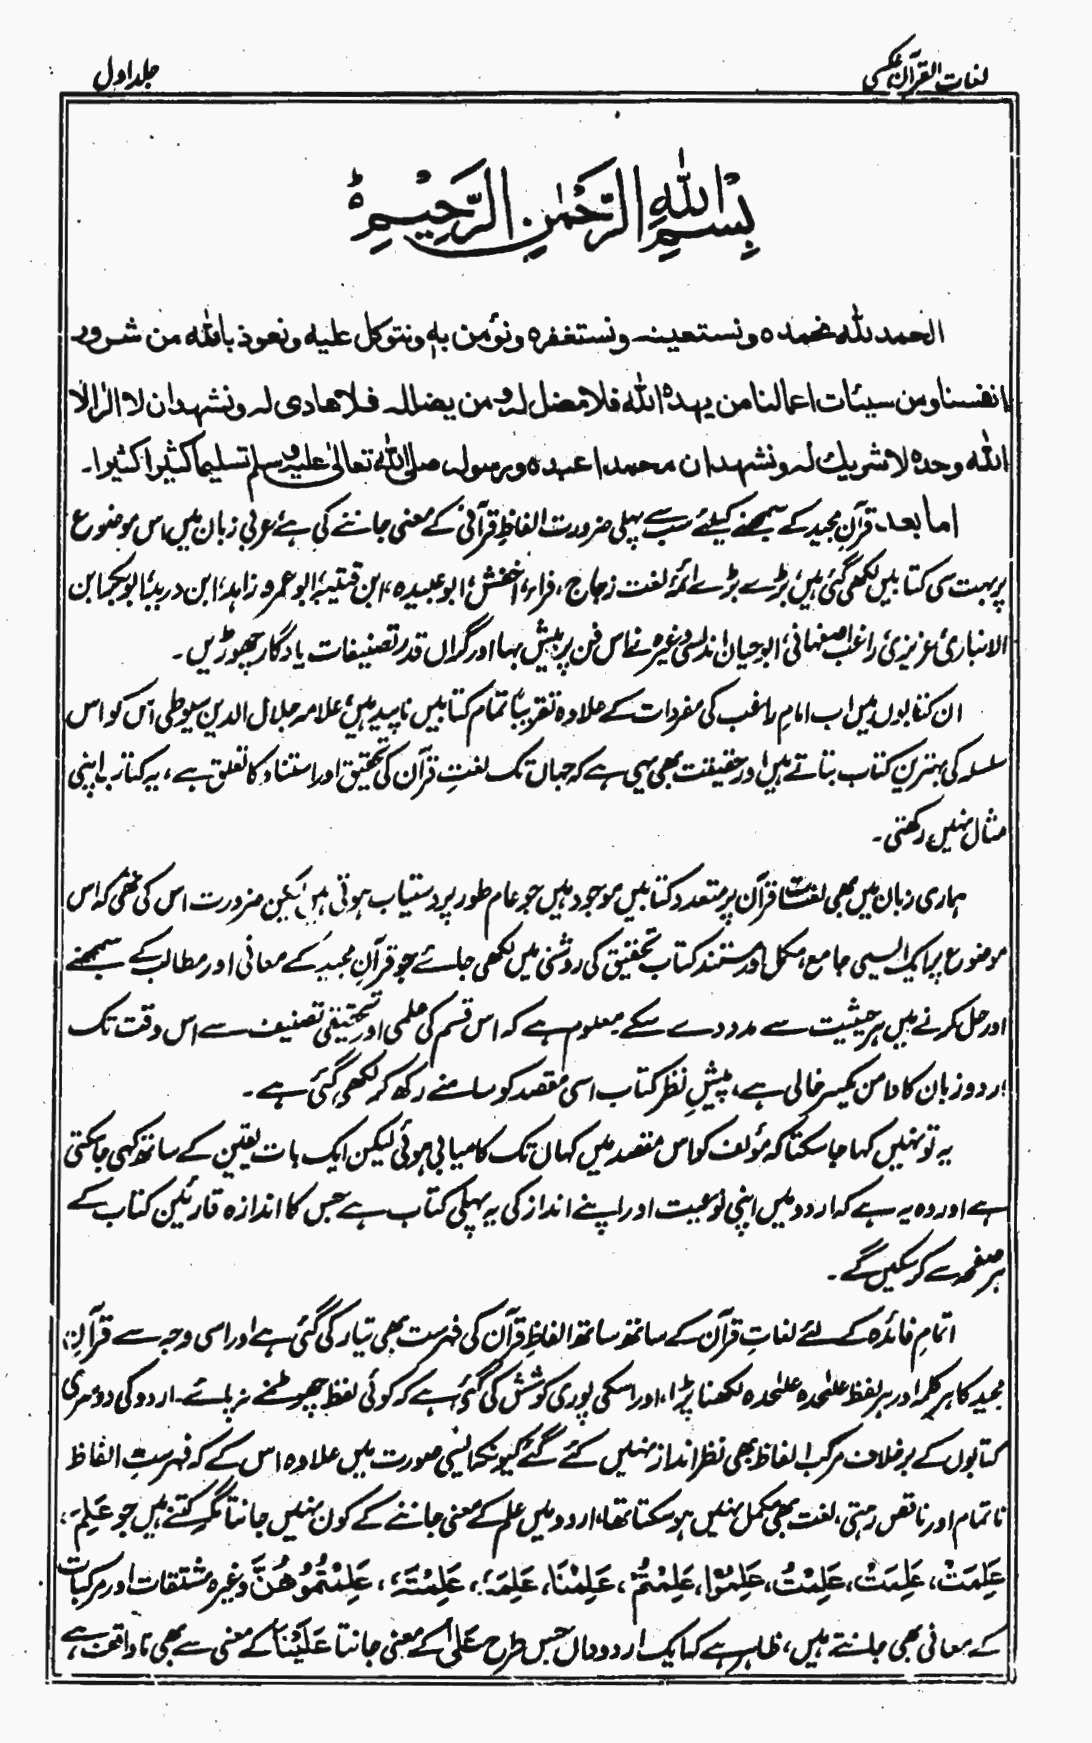 لغات القرآن عکسی
جلد اول
بِسْمِ اللهِ الرَّحْمٰنِ الرَّحِيْمِ ط
الحمد لله نحمده ونستعينه ونستغفره ونؤمن به ونتوكل عليه ونعوذ بالله من شرور
انفسنا ومن سيئات اعمالنا من يهده الله فلا مضل له ومن يضلله فلا هادى له ونشهد ان لا اله الا
الله وحده لا شريك له ونشهد ان محمدا عبده ورسوله صلى الله تعالىٰ عليه وسلم تسليما كثيرا كثيرا۔
اما بعد۔ قرآن مجید کے سمجھنے کیلئے سب سے پہلی ضرورت الفاظِ قرآنی کے معنی جاننے کی ہے، عربی زبان میں اس موضوع
پر بہت سی کتابیں لکھی گئی ہیں، بڑے بڑے ائمۂ لغت زجاج، فراء، اخفش، ابوعبیدہ، ابن قتیبہ، ابوعمرو زاہد، ابن درید، ابوبکر ابن
الانباری، عزیزی، راغب اصفہانی، ابوحیان اندلسی وغیرہ نے اس فن پر بیش بہا اور گراں قدر تصنیفات یادگار چھوڑیں۔
ان کتابوں میں اب امام راغب کی مفردات کے علاوہ تقریباً تمام کتابیں ناپید ہیں، علامہ جلال الدین سیوطی اس کو اس
سلسلہ کی بہترین کتاب بتاتے ہیں اور حقیقت بھی یہی ہے کہ جہاں تک لغتِ قرآن کی تحقیق اور استناد کا تعلق ہے، یہ کتاب اپنی
مثال نہیں رکھتی۔
ہماری زبان میں بھی لغات قرآن پر متعدد کتابیں موجود ہیں جو عام طور پر دستیاب ہوتی ہیں لیکن ضرورت اس کی تھی کہ اس
موضوع پر ایک ایسی جامع، مکمل اور مستند کتاب تحقیق کی روشنی میں لکھی جائے جو قرآنِ مجید کے معانی اور مطالب کے سمجھنے
اور حل کرنے میں ہر حیثیت سے مدد دے سکے۔ معلوم ہے کہ اس قسم کی علمی اور تحقیقی تصنیف سے اس وقت تک
اردو زبان کا دامن یکسر خالی ہے، پیشِ نظر کتاب اسی مقصد کو سامنے رکھ کر لکھی گئی ہے۔
یہ تو نہیں کہا جا سکتا کہ مؤلف کو اس مقصد میں کہاں تک کامیابی ہوئی لیکن ایک بات یقین کے ساتھ کہی جا سکتی
ہے اور وہ یہ ہے کہ اردو میں اپنی نوعیت اور اپنے انداز کی یہ پہلی کتاب ہے جس کا اندازہ قارئین کتاب کے
ہر صفحہ سے کر سکیں گے۔
اتمامِ فائدہ کے لئے لغاتِ قرآن کے ساتھ ساتھ الفاظِ قرآن کی فہرست بھی تیار کی گئی ہے اور اسی وجہ سے قرآنِ
مجید کا ہر کلمہ اور ہر لفظ علٰحدہ علٰحدہ لکھنا پڑا، اور اسکی پوری کوشش کی گئی ہے کہ کوئی لفظ چھوٹنے نہ پائے۔ اردو کی دوسری
کتابوں کے برخلاف مرکب الفاظ بھی نظر انداز نہیں کئے گئے کیونکہ ایسی صورت میں علاوہ اس کے کہ فہرستِ الفاظ
ناتمام اور ناقص رہتی، لغت بھی مکمل نہیں ہوسکتا تھا، اردو میں علم کے معنی جاننے کے کون نہیں جانتا مگر کتنے ہیں جو عَلِمَ،
عَلِمَتْ، عَلِمَتْ، عَلِمْتُ، عَلِمُوْا، عَلِمْتُمْ، عَلِمْنَا، عَلِمَہٗ، عَلِمْتَہٗ، عَلِمْتُمُوْهُنَّ وغیرہ مشتقات اور مرکبات
کے معانی بھی جانتے ہیں، ظاہر ہے کہ ایک اردو داں جس طرح عَلٰی کے معنی جانتا عَلَيْنَا کے معنی سے بھی ناواقف ہے